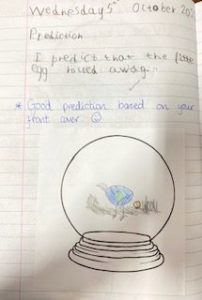 Wednesday 5 October 202
Prediction
I predict that the
egg rolled away.
* Good prediction based on your
front cover ☺